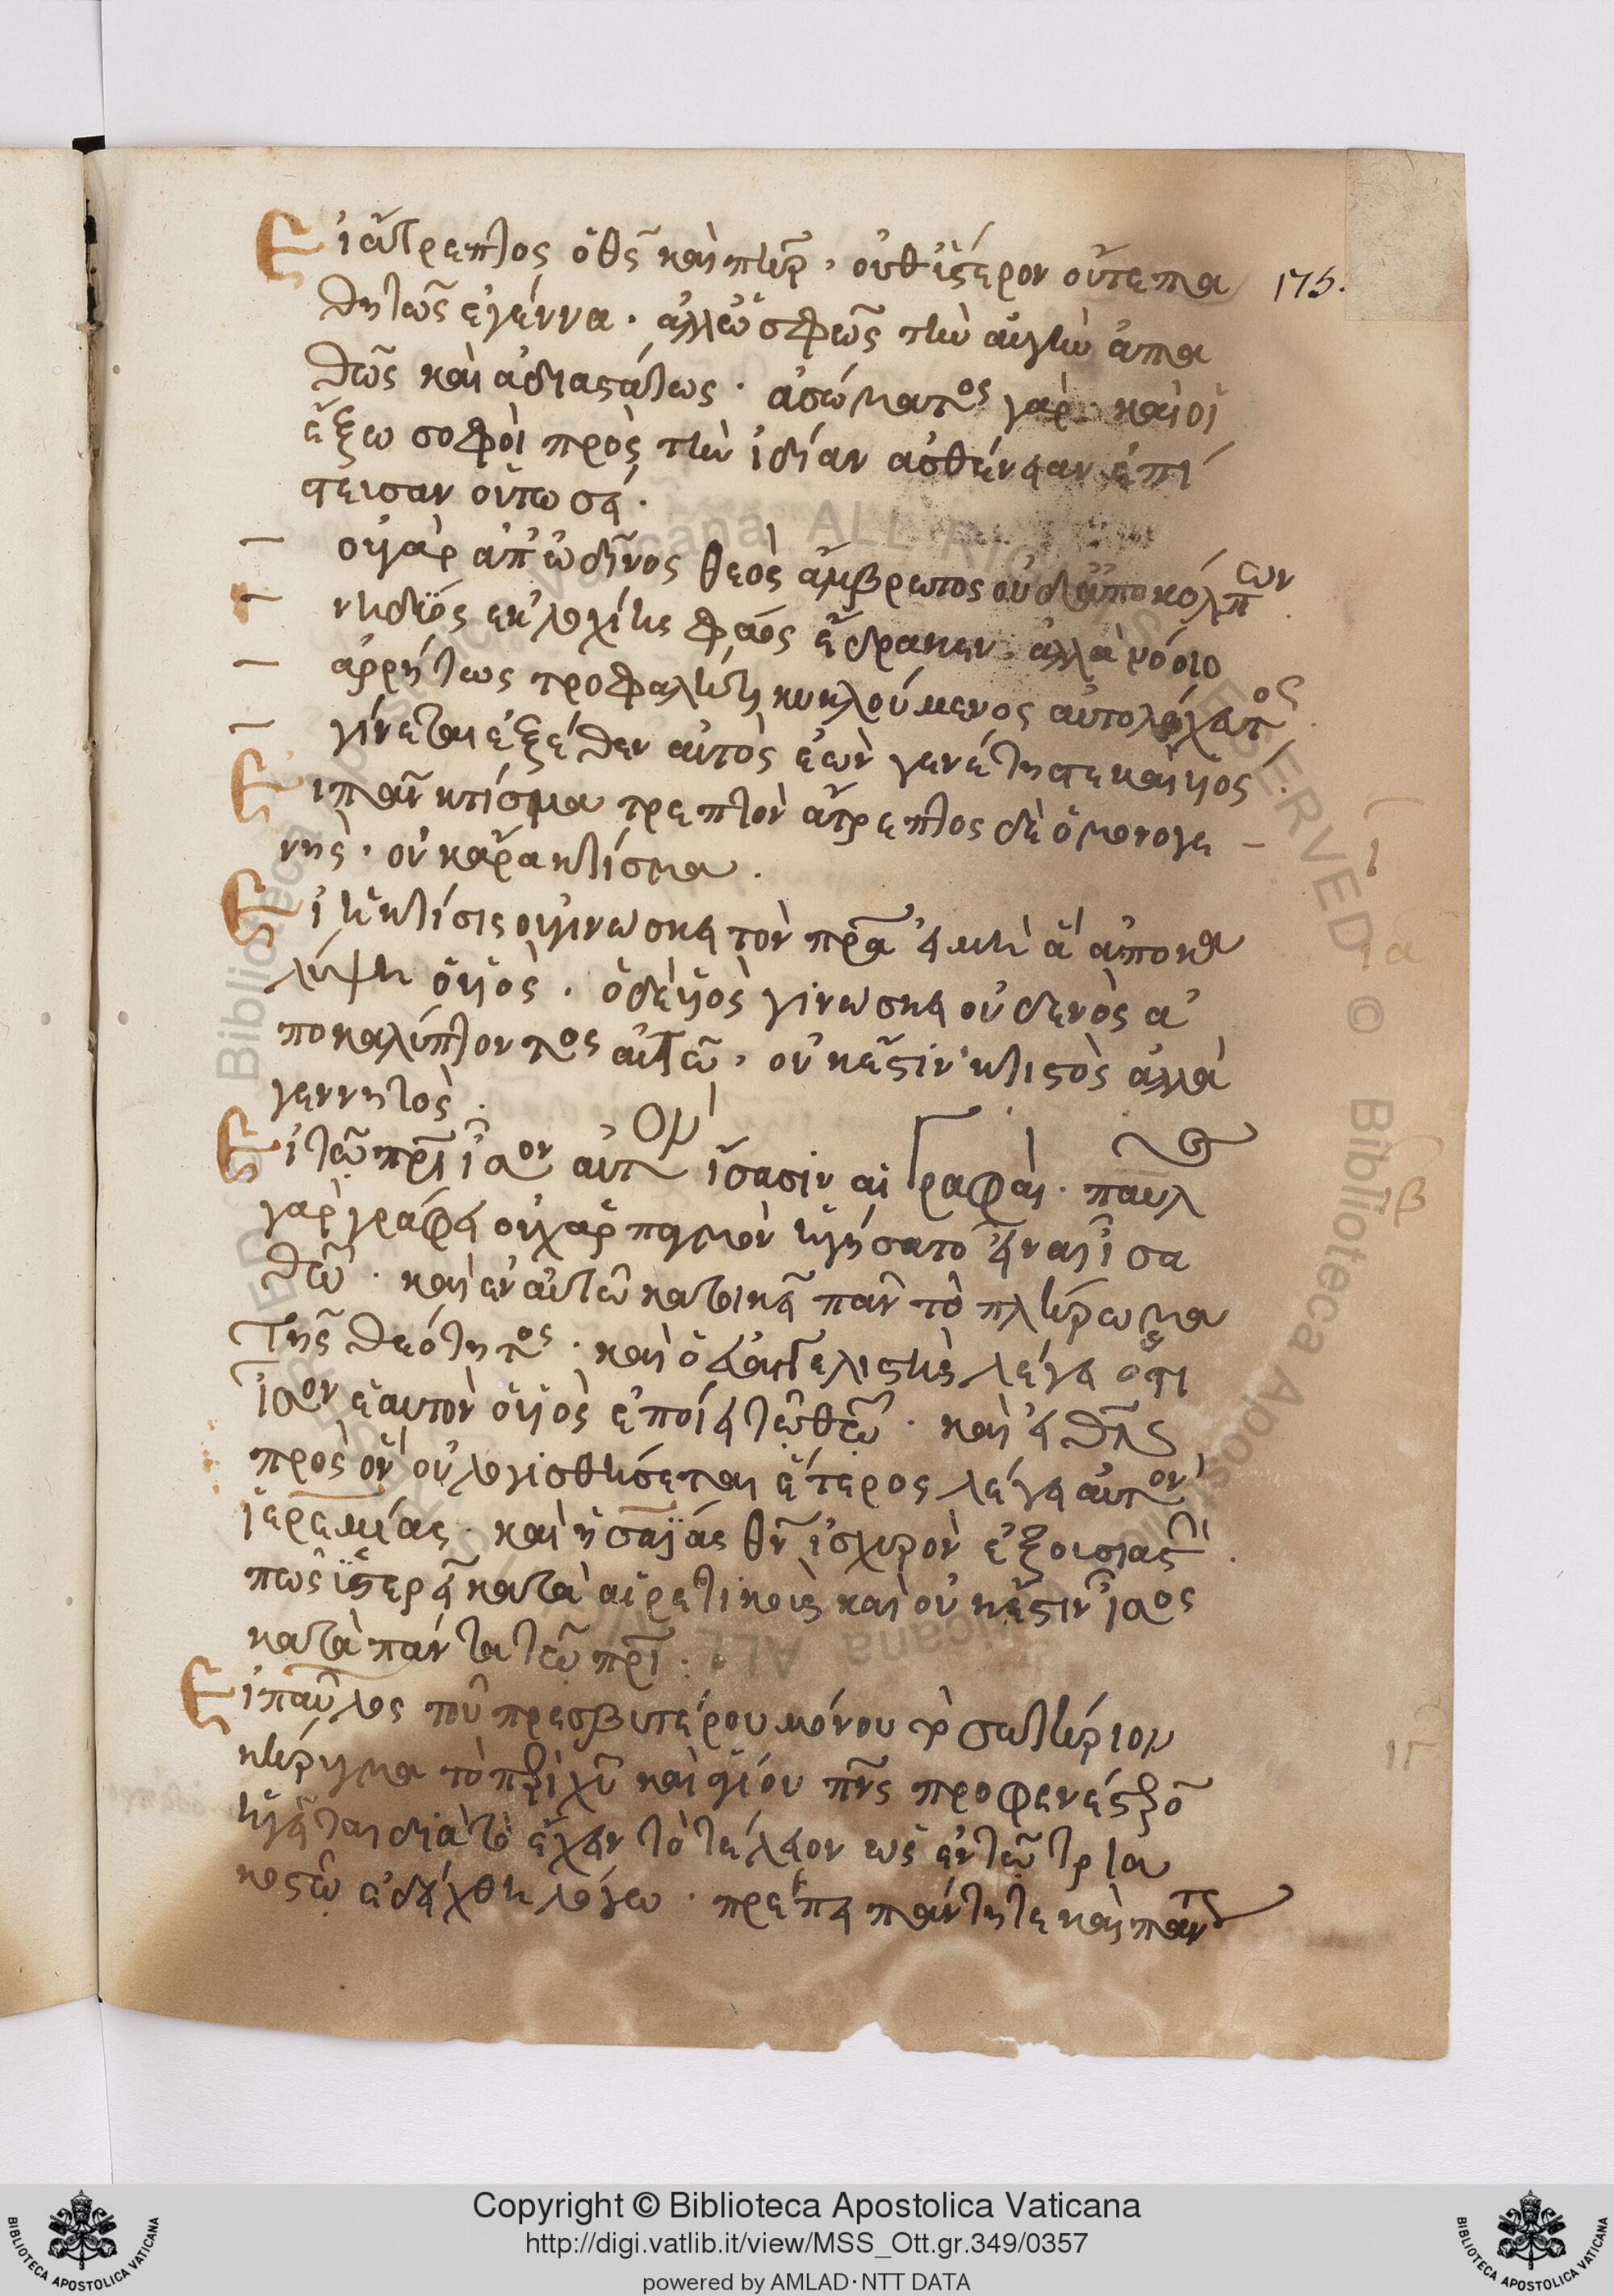 Εἰ ἄτρεπτος ὁ θς καὶ πὴρ, οὐθ' ὕστερον οὔτε πα
175.
θητῶς ἐγέννα. ἀλλ' ὡς φῶς τὴν αὐγὴν ἀπα
θῶς καὶ ἀδιαστάτως. ἀσώματος γάρ. καὶ οἱ
ἔξω σοφοὶ πρὸς τὴν ἰδίαν ἀσθένειαν ἐπί
στευσαν οὕτωσί.
οὐ γὰρ ἀπ' ὠδῖνος θεὸς ἄμβροτος οὐδ' ἀπὸ κόλπων
νηδύος ἐκ λοχίης φάος ἔδρακεν. ἀλλὰ νόοιο
ἀρρήτως στροφάλιγγι κυκλούμενος αὐτολόχευτος
γίνεται ἐξ ἕθεν αὐτὸς ἐὼν γενέτης τε καὶ υἱός.
Εἰ πᾶν κτίσμα τρεπτὸν ἄτρεπτος δὲ ὁ μονογε
νὴς. οὐκ ἄρα κτίσμα.
ι
Εἰ ἡ κτίσις οὐ γινώσκει τὸν πρα εἰ μὴ ἀποκα
ια
λύψη ὁ υἱὸς. ὁ δὲ υἱὸς γινώσκει οὐδενὸς ἀ
ποκαλύπτοντος αὐτῶ, οὐκ ἔστιν κτιστὸς ἀλλὰ
γεννητὸς.
Εἰ τῶ πρι ἴσον αὐτὸν ἴσασιν αἱ γραφαὶ. παῦλ
ιβ
γὰρ γράφει οὐχ ἁρπαγμὸν ἡγήσατο εἶναι ἴσα
θῶ. καὶ ἐν αὐτῶ κατοικεῖ πᾶν τὸ πλήρωμα
τῆς θεότητος. καὶ ὁ εὐαγγελιστὴς λέγει ὅτι
ἴσον ἑαυτὸν ὁ υἱὸς ἐποίει τῶ θεῶ. καὶ εἷς θς
πρὸς ὃν οὐ λογισθήσεται ἕτερος λέγει αὐτὸν
ἱερεμίας. καὶ ἡσαΐας θν ἰσχυρὸν ἐξουσιαστὴν.
πῶς ὑστερεῖ κατὰ αἱρετικοὺς καὶ οὐκ ἔστιν ἴσος
κατὰ πάντα τῶ πρι.
Εἰ παῦλος τοῦ πρεσβυτέρου μόνου τὸ σωτήριον
κήρυγμα τὸ περὶ χυ καὶ ἁγίου πνς προφερέστερον
ιγ
ἡγεῖται διὰ τὸ ἔχειν τὸ τέλειον ὡς ἐν τῶ τρια
κοστῶ ἐδείχθη λόγω. πρέπει πάντη τε καὶ πάντως
Copyright © Biblioteca Apostolica Vaticana
http://digi.vatlib.it/view/MSS_Ott.gr.349/0357
powered by AMLAD·NTT DATA